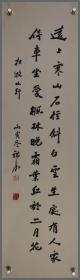 遠上寒山石徑斜白雲生處有人家
停車坐愛楓林晚霜葉紅於二月花
杜牧山行
丙寅冬